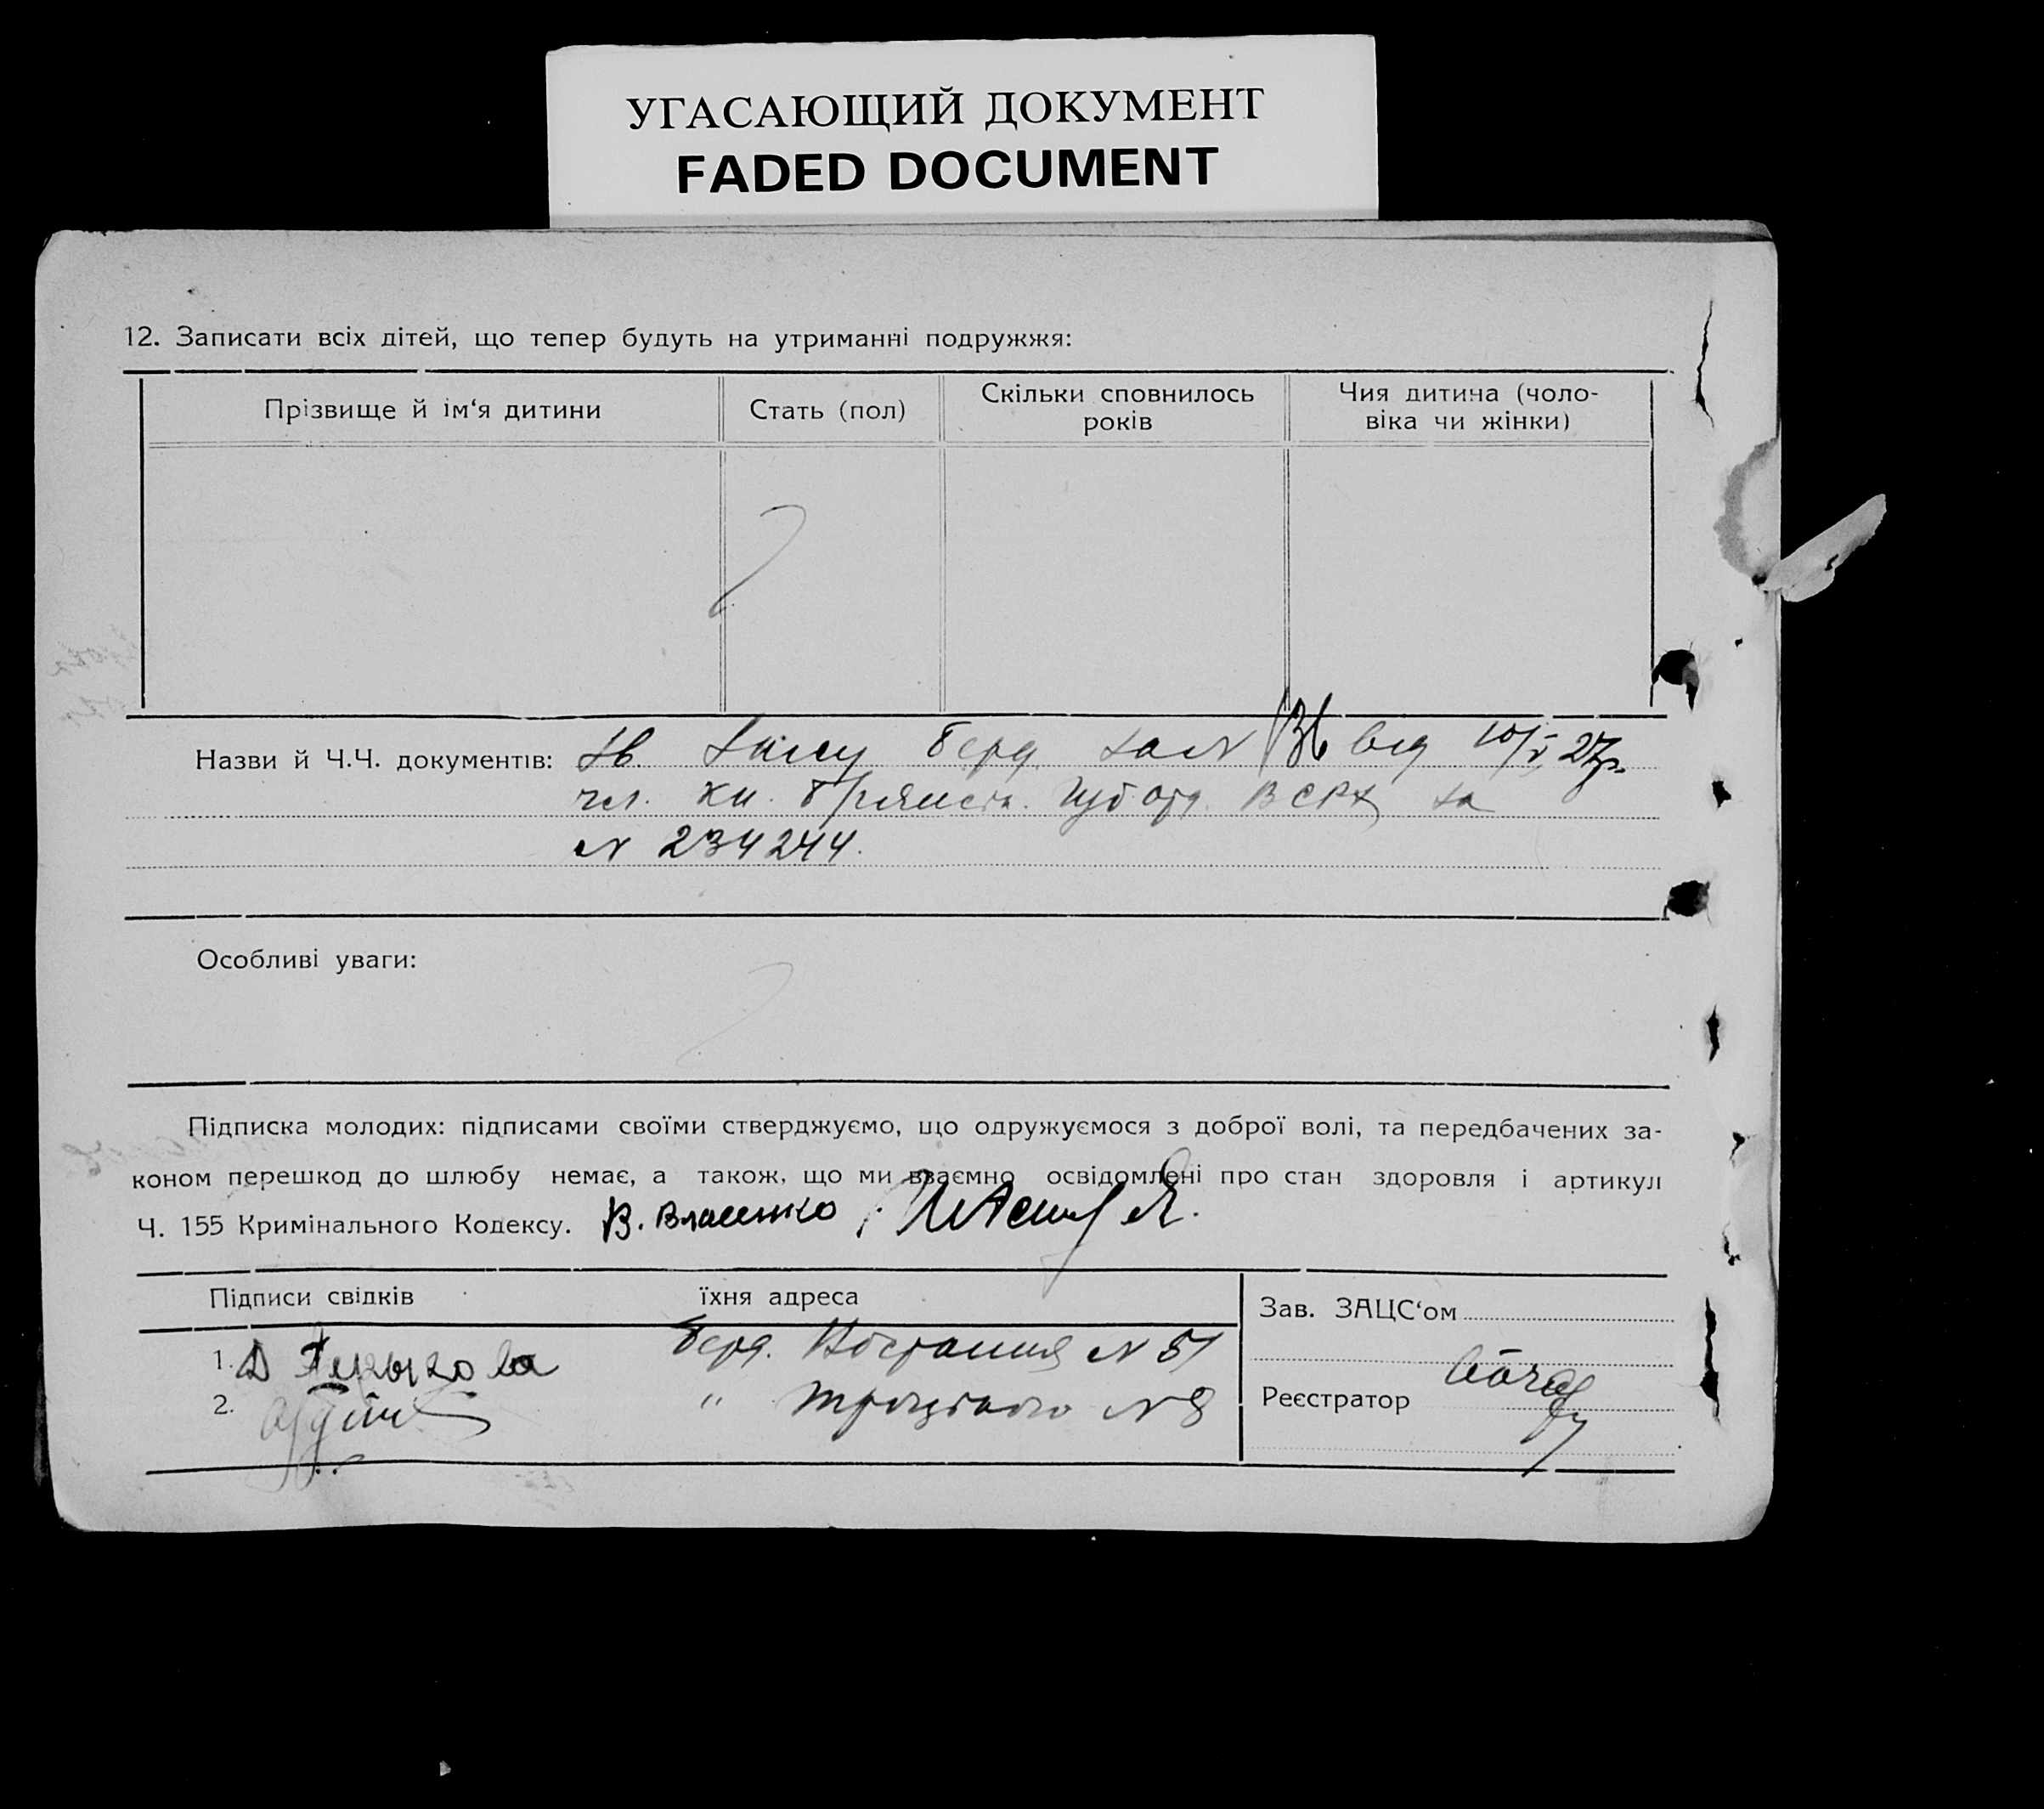 УГАСАЮЩИЙ ДОКУМЕНТ
FADED DOCUMENT
12. Записати всіх дітей, що тепер будуть на утриманні подружжя:
Прізвище й ім‘я дитини
Стать (пол)
Скільки сповнилось
років
Чия дитина (чоло-
віка чи жінки)
Назви й Ч.Ч. документів: Берд. за № 136 від 10/V 27р.
чл. кн. ВСРХ за
№ 234244.
Особливі уваги:
Підписка молодих: підписами своїми стверджуємо, що одружуємося з доброї волі, та передбачених за-
коном перешкод до шлюбу немає, а також, що ми взаємно освідомлені про стан здоровля і артикул
Ч. 155 Кримінального Кодексу. В. Власенко
Підписи свідків
їхня адреса
1. Д Берд. Восстания № 51
2. " Троцького № 8
Зав. ЗАЦС‘ом
Реєстратор